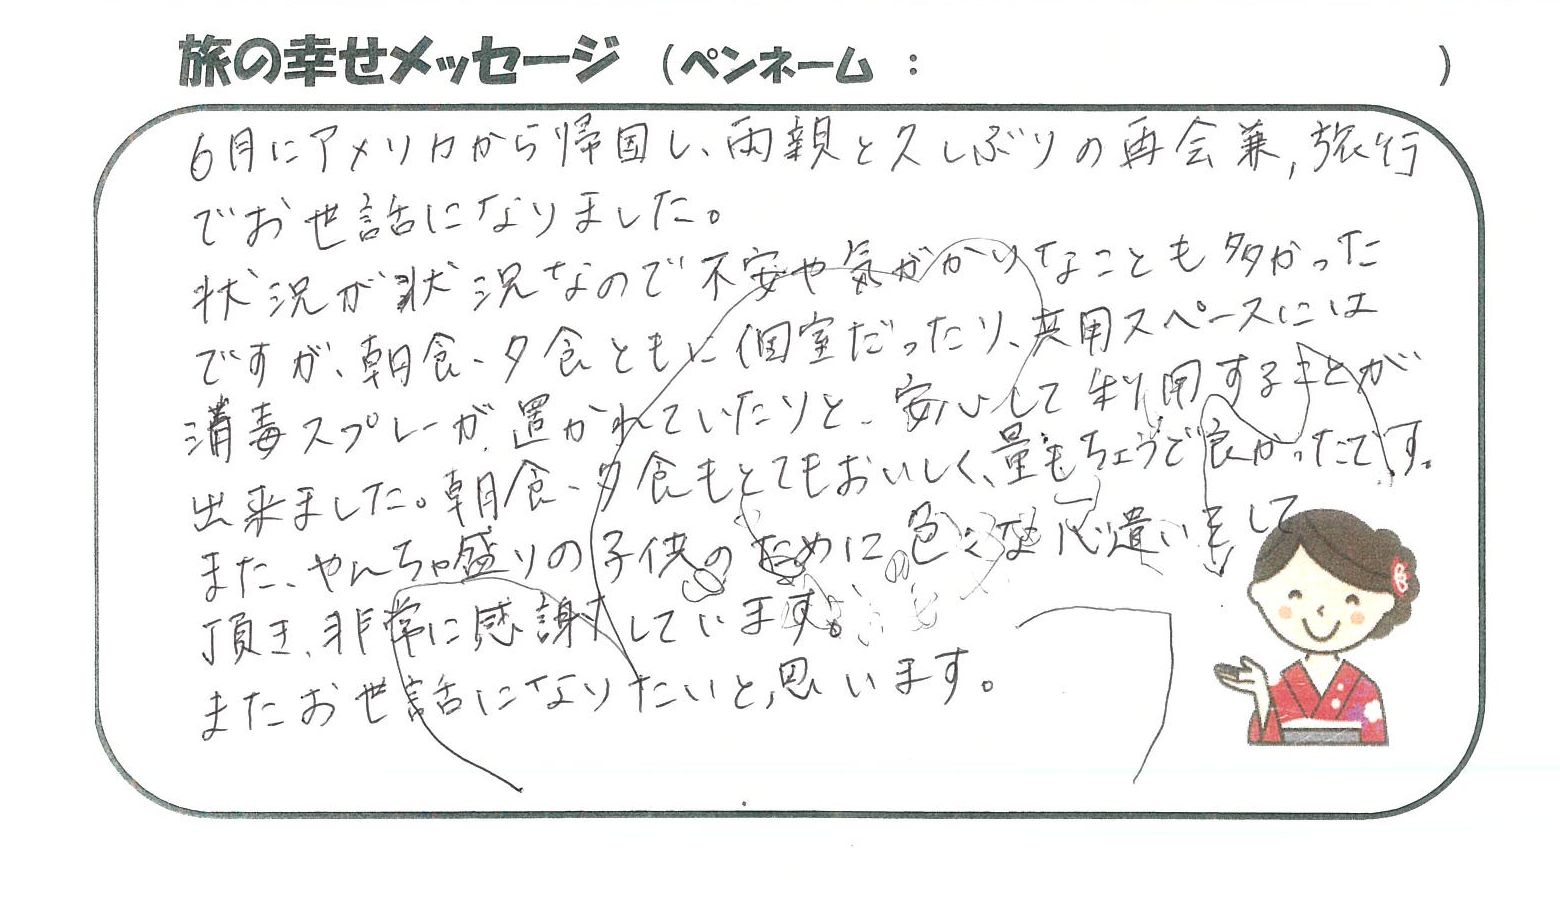 旅の幸せメッセージ (ペンネーム : )
6月にアメリカから帰国し、両親と久しぶりの再会兼,旅行
でお世話になりました。
状況が状況なので不安や気がかりなことも多かった
ですが、朝食、夕食ともに個室だったり、共用スペースには
消毒スプレーが置かれていたりと、安心して利用することが
出来ました。朝食、夕食もとてもおいしく、量もちょうど良かったです。
また、やんちゃ盛りの子供のために色々な心遣いをして
頂き、非常に感謝しています。
またお世話になりたいと思います。